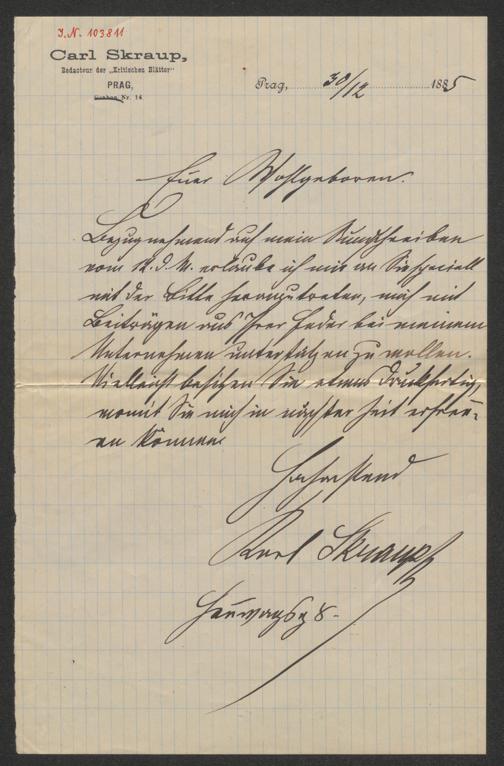 I.N. 103811
Carl Skraup,
Redacteur der „Kritischen Blätter“
PRAG,
Nr. 14
Prag, 30/12 1885
Euer Wohlgeboren.
Bezugnehmend auf mein Rundschreiben
vom d. M. erlaube ich mir an Sie speciell
mit der Bitte heranzutreten, mich mit
Beiträgen aus Ihrer Feder bei meinem
Unternehmen unterstützen zu wollen.
Vielleicht besitzen Sie etwas Druckfertiges,
womit Sie mich in nächster Zeit erfreu-
en können.
Hochachtend
Karl Skraup
8.